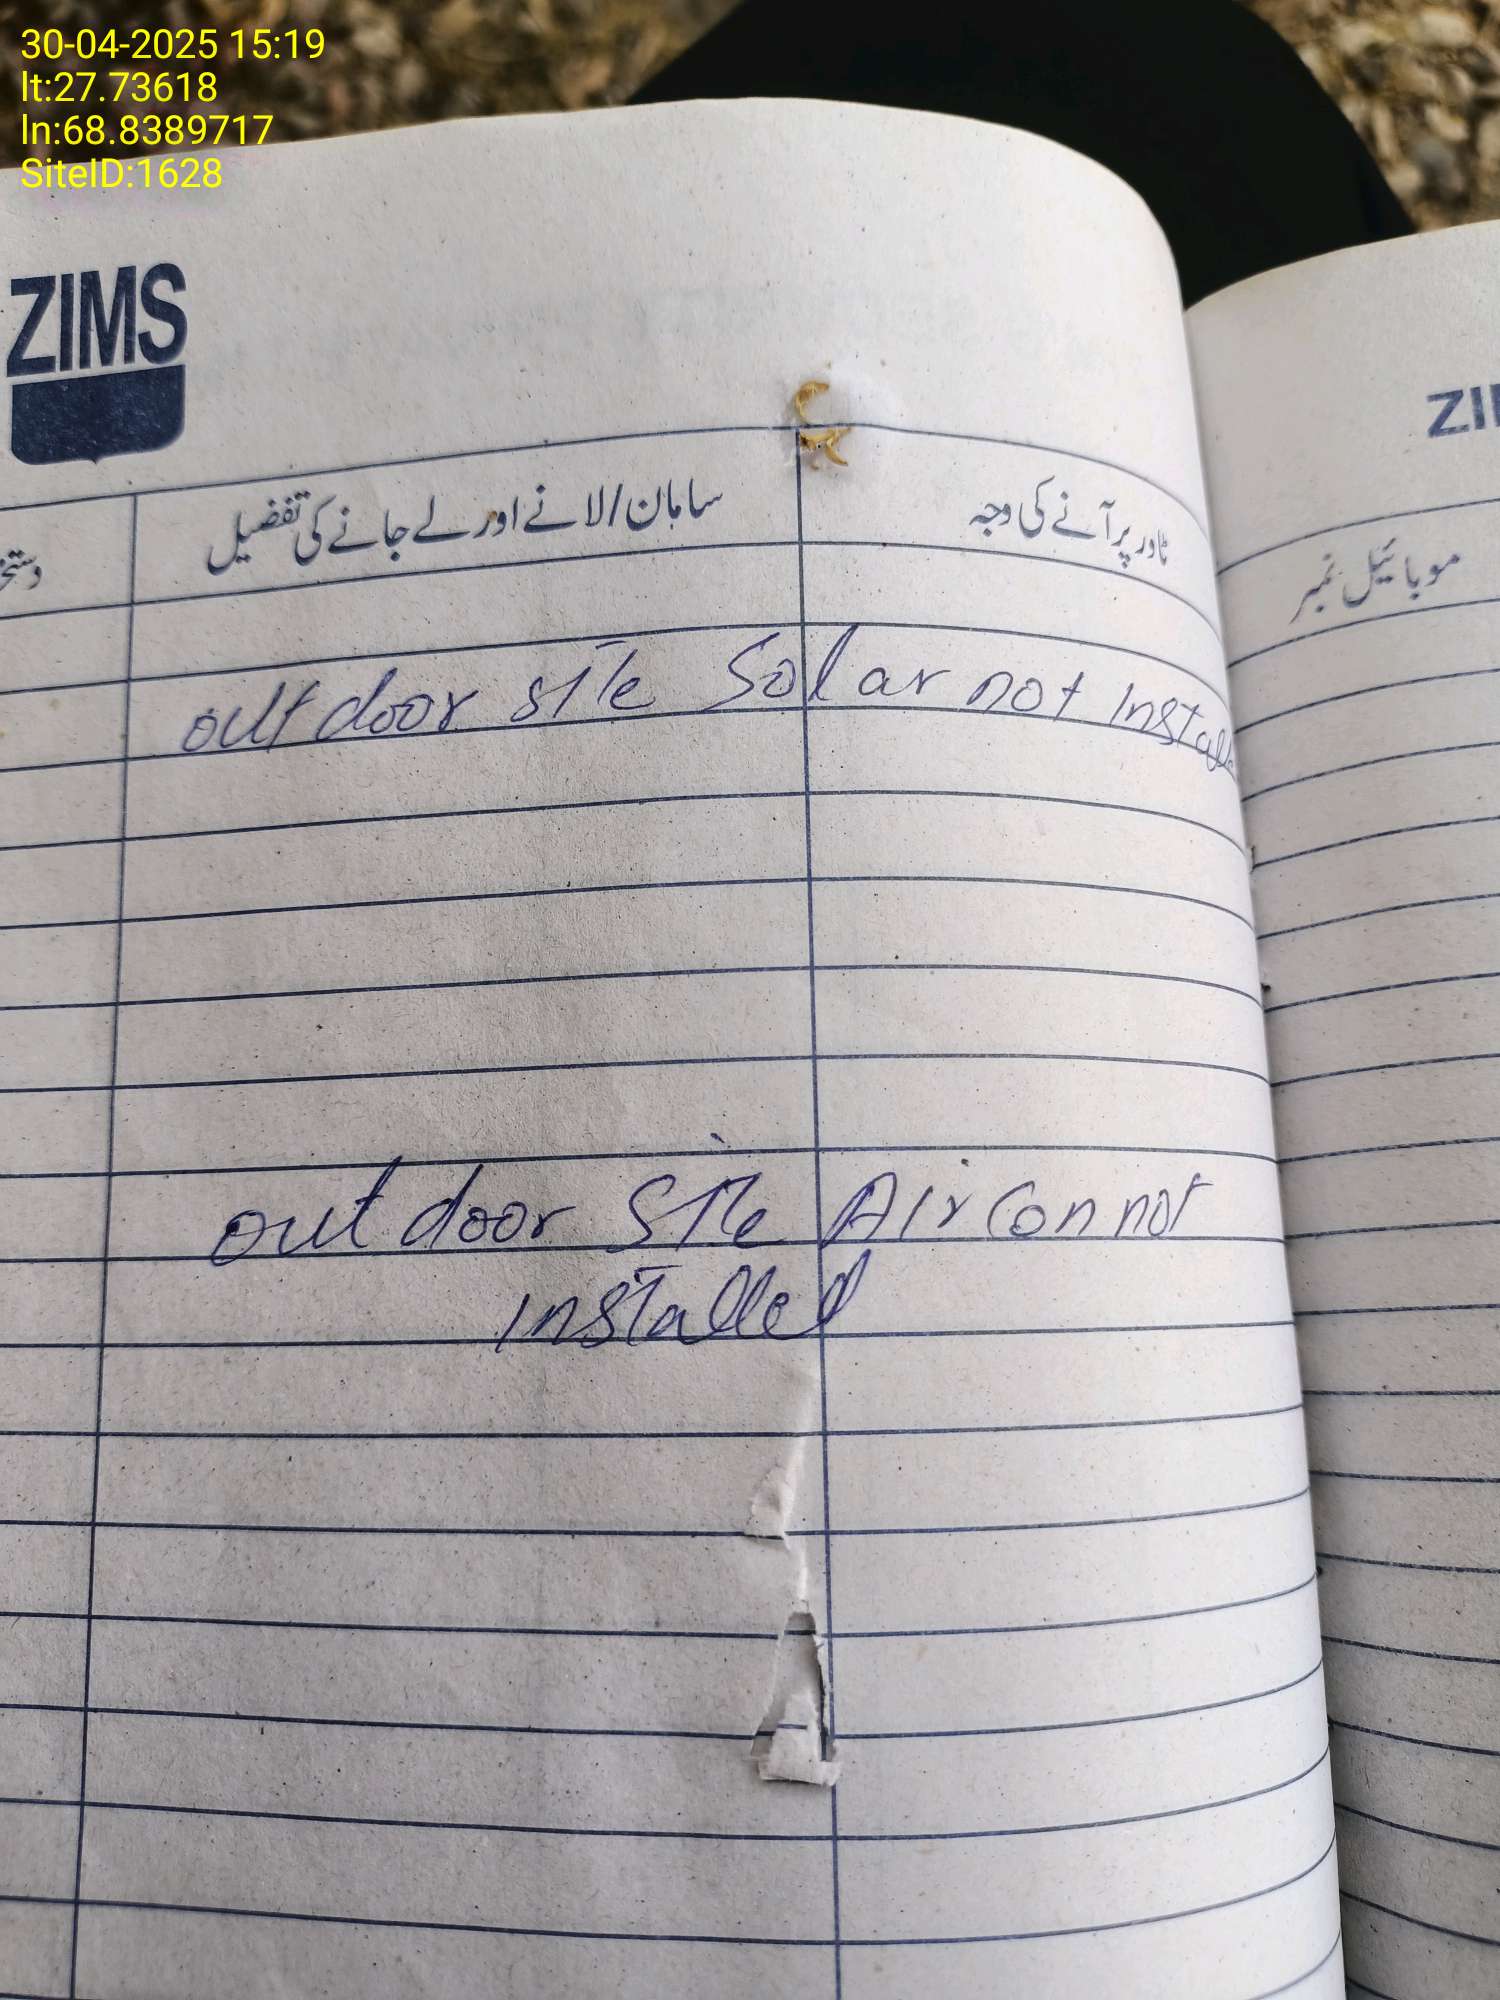 30-04-2025 15:19
lt:27.73618
ln:68.8389717
SiteID:1628
ZIMS
ٹاور پر آنے کی وجہ
سامان/لانے اور لے جانے کی تفضیل
موبائیل نمبر
out door site Solar not Install
out door Site Air Con not
installed